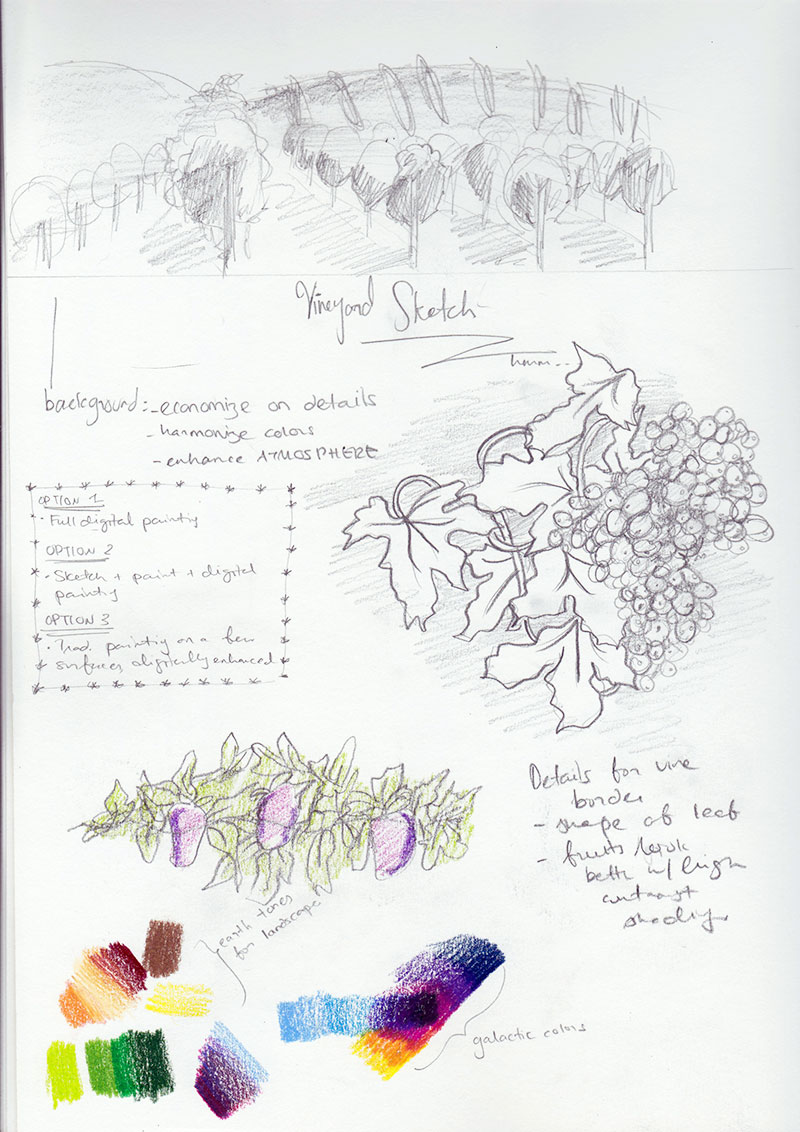 Vineyard Sketch
hmm..
background: - economize on details
- harmonize colors
- enhance ATMOSPHERE
OPTION 1
- Full digital painting
OPTION 2
- Sketch + paint + digital
painting
OPTION 3
- Trad. painting on a few
surfaces digitally enhanced
Details for vine
border
- shape of leaf
- fruits look
better w/ high
contrast
shading
earth tones
for landscape
galactic colors